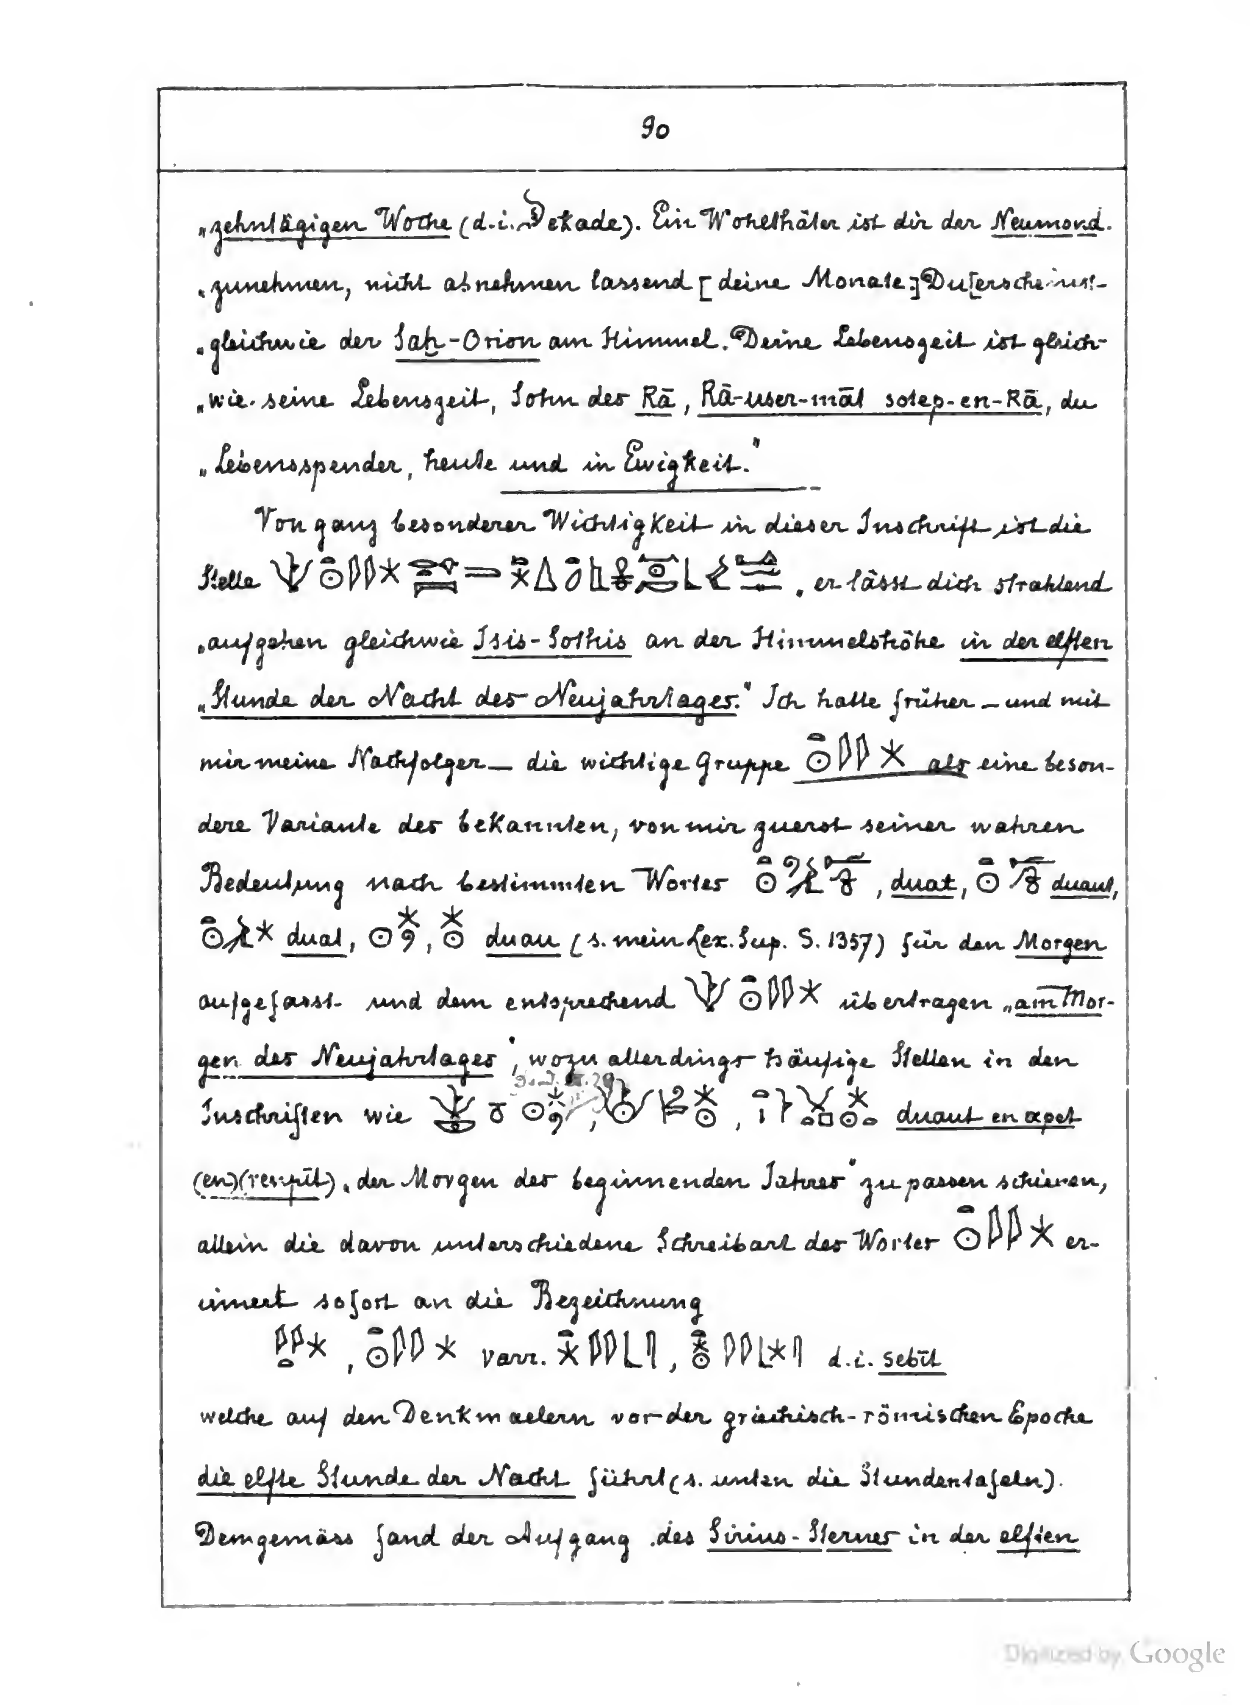 90
„zehntägigen Woche (d.i. Dekade). Ein Wohlthäter ist dir der Neumond.
„zunehmen, nicht abnehmen lassend [deine Monate] Du [erscheinst]
„gleichwie der Saḥ-Orion am Himmel. Deine Lebenszeit ist gleich-
„wie seine Lebenszeit, Sohn des Rā, Rā-user-māt sotep-en-Rā, du
„Lebensspender, heute und in Ewigkeit."
Von ganz besonderer Wichtigkeit in dieser Inschrift ist die
Stelle „er lässt dich strahlend
„aufgehen gleichwie Isis-Sothis an der Himmelshöhe in der elften
„Stunde der Nacht des Neujahrtages." Ich hatte früher – und mit
mir meine Nachfolger – die wichtige Gruppe als eine beson-
dere Variante des bekannten, von mir zuerst seiner wahren
Bedeutung nach bestimmten Wortes , duat, duaut,
duat, , duau (s. mein Lex. Sup. S. 1357) für den Morgen
aufgefasst und dem entsprechend übertragen „am Mor-
gen des Neujahrtages", wozu allerdings häufige Stellen in den
Inschriften wie , , duaut en apet
(en)(renpūt) „der Morgen des beginnenden Jahres" zu passen schienen,
allein die davon unterschiedene Schreibart des Wortes er-
innert sofort an die Bezeichnung
, varr. , d.i. sebūt
welche auf den Denkmaelern vor der griechisch-römischen Epoche
die elfte Stunde der Nacht führt (s. unten die Stundentafeln).
Demgemäss fand der Aufgang des Sirius-Sternes in der elften
Digitized by Google